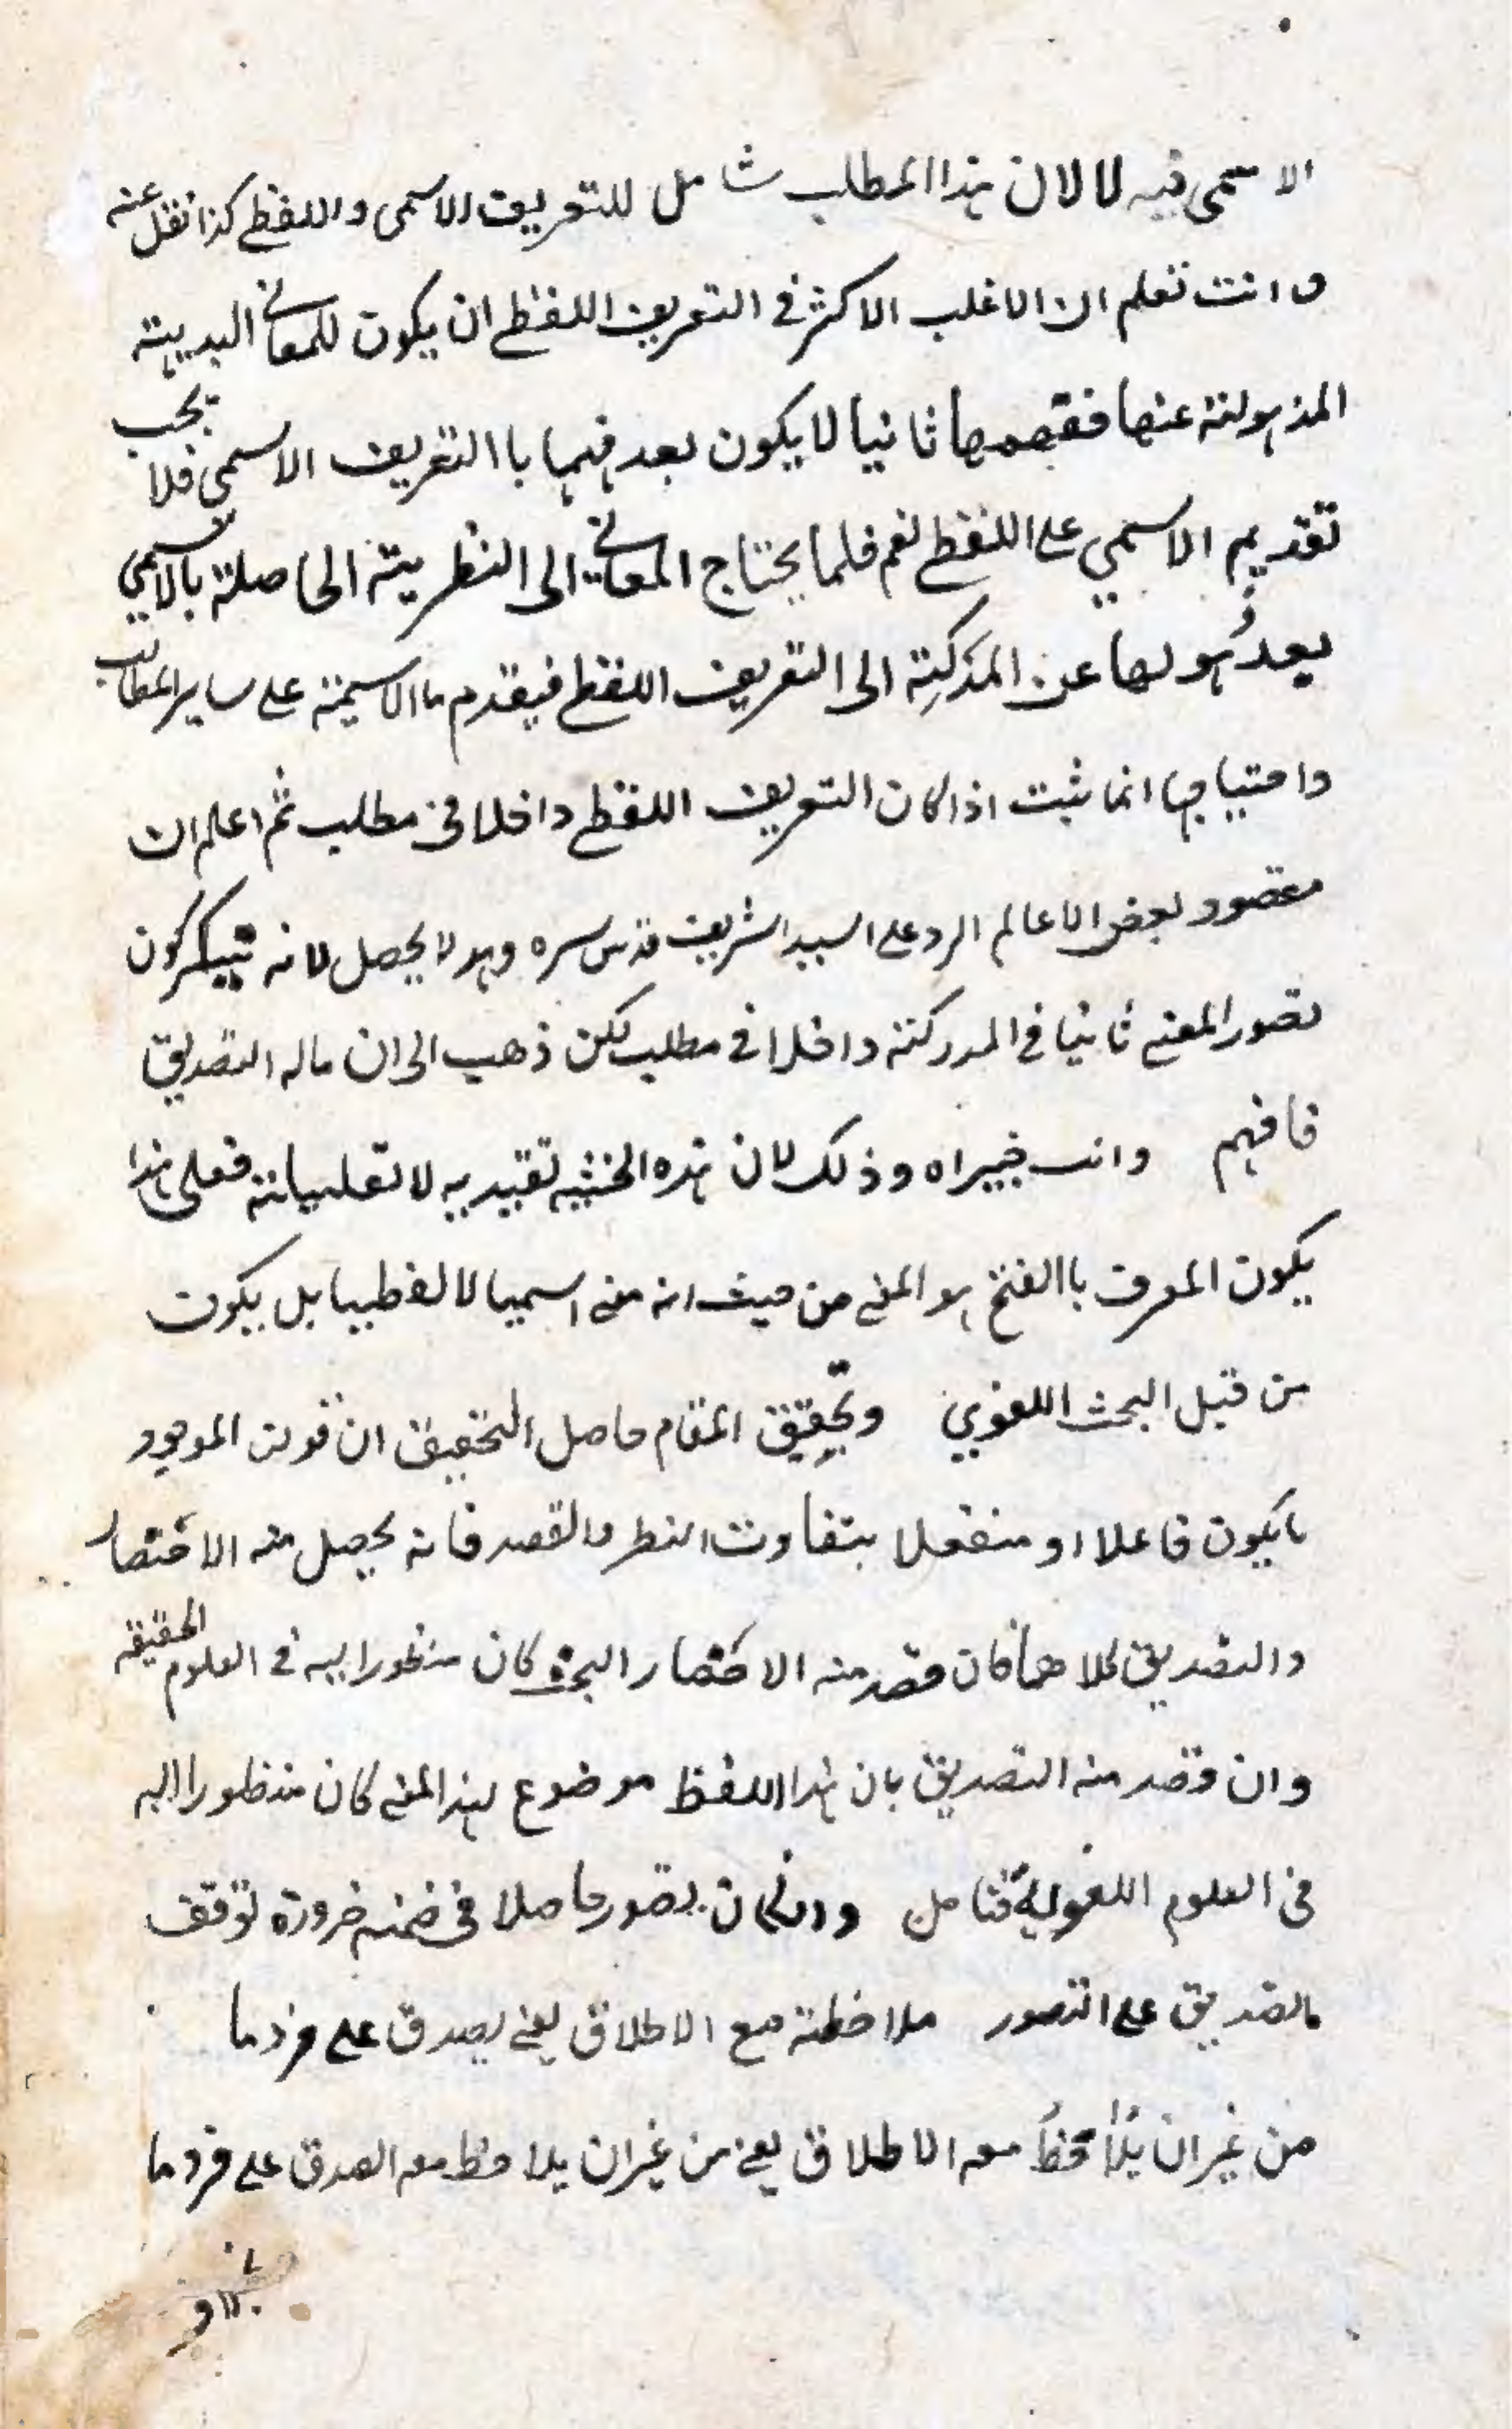 الاسمى فيه لا لان هذا المطلب شامل للتعريف الاسمى واللفظى كذا نقل عنه
وانت تعلم ان الاغلب الاكثر فى التعريف اللفظى ان يكون للمعانى البديهية
المذهولة عنها ففهمها ثانيا لا يكون بعد فهمها باالتعريف الاسمى فلا يجب
تقديم الاسمي على اللفظى نعم فلما يحتاج المعانى الى النظرية الحاصلة بالاسمي
بعد ذهولها عن المدركة الى التعريف اللفظى فيقدم ما الاسمية على ساير المطالب
واحتياجها انما ثبت اذا كان التعريف اللفظى داخلا فى مطلب ثم اعلم ان
مقصود بعض الاعالم الرد على السيد الشريف قدس سره وهو لا يحصل لانه
تصور المعنى ثانيا فى المدركة داخلا فى مطلب لكن ذهب الى ان ماله التصديق
فافهم وانت خبير اه وذلك لان هذه الحيثيه تقييديه لا تعليلية فعلى هذا
يكون المعرف باالفتح هو المعنى من حيث انه معنى اسميا لا لفظيا بل يكون
من قبيل البحث اللغوي وتحقيق المقام حاصل التحقيق ان قولن الموجود
ما يكون فاعلا او منفعلا بتفاوت النظر والقصد فانه يحصل منه الاحضار
والتصديق كلاهما فان قصد منه الاحضار البحث كان منظورا اليه فى العلوم الحقيقة
وان قصد منه التصديق بان هذا اللفظ موضوع لهذا المعنى كان منظورا اليه
فى العلوم اللغوية فتامل وان كان تصور حاصلا فى ضمنه ضرورة توقف
التصديق على التصور ملاحظة مع الاطلاق يعنى يصدق على فرد ما
من غير ان يلاحظ معه الاطلاق يعنى من غير ان يلاحظ معه الصدق على فرد ما